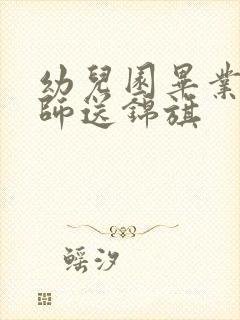 幼兒園畢業
師送錦旗
鰩汐